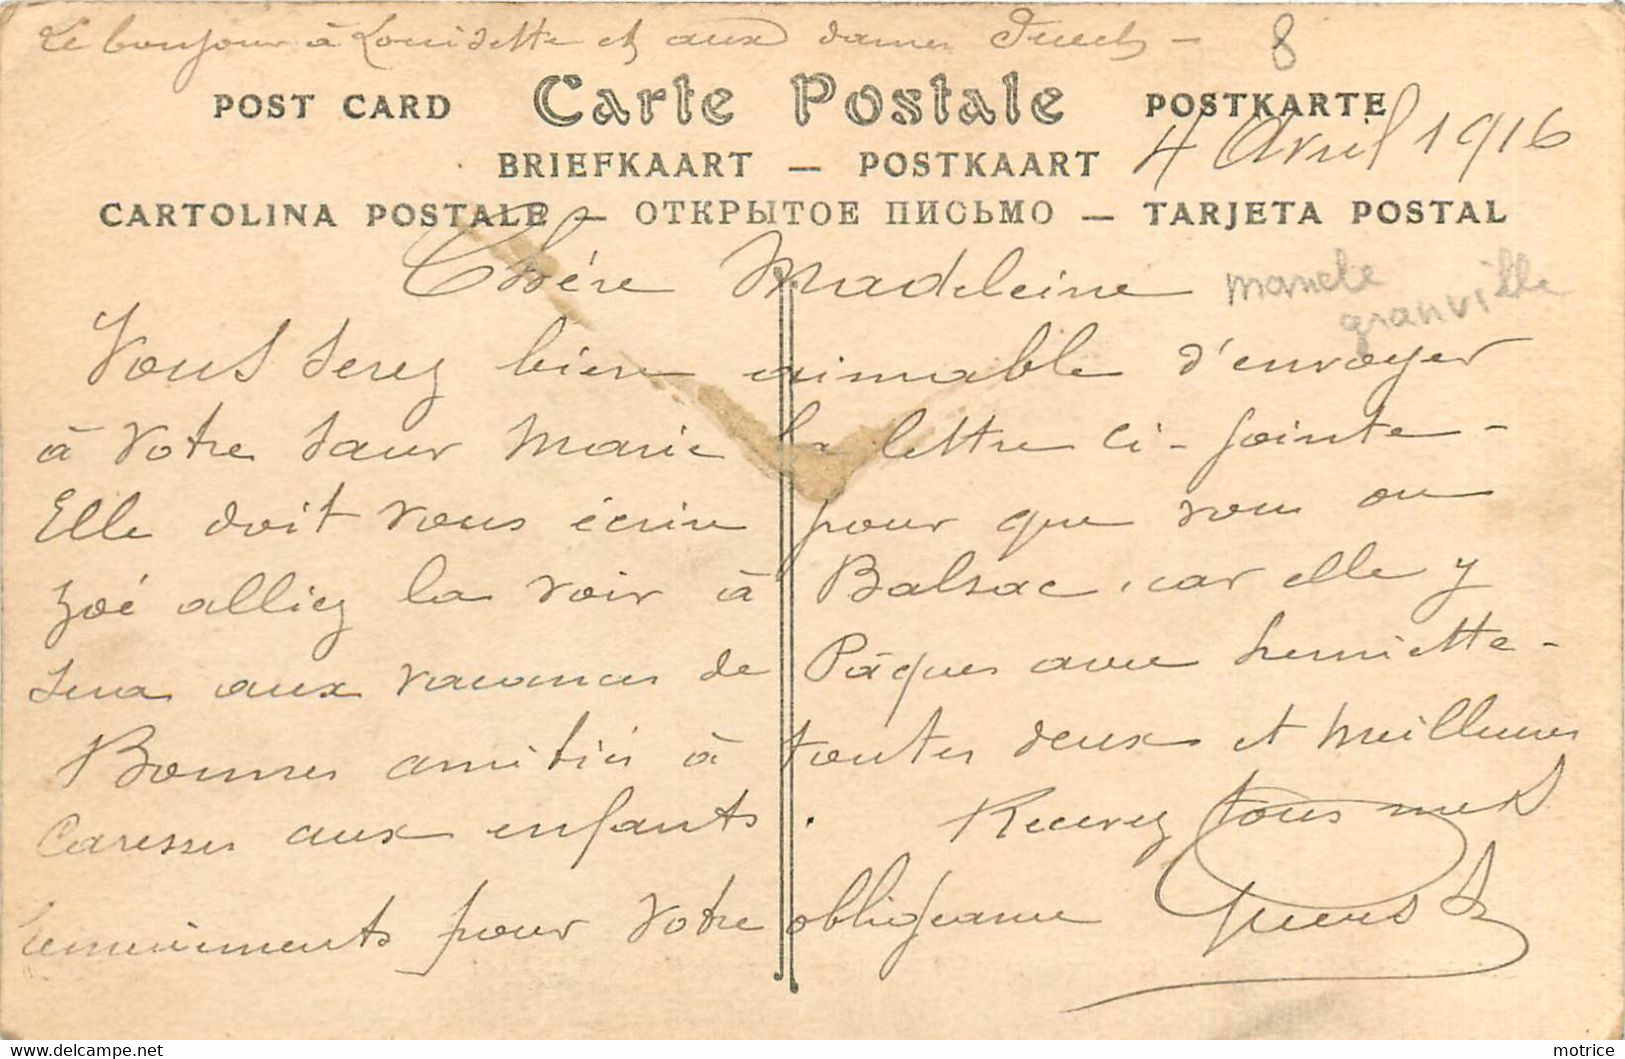 Le bonjour à Louisette et aux dames
8
POST CARD Carte Postale POSTKARTE
BRIEFKAART — POSTKAART
4 Avril 1916
CARTOLINA POSTALE — ОТКРЫТОЕ ПИСЬМО — TARJETA POSTAL
Chère Madeleine
manche
granville
Vous serez bien aimable d'envoyer
à votre sœur Marie la lettre ci-jointe -
Elle doit vous écrire pour que vous ou
Zoé alliez la voir à Balzac, car elle y
sera aux vacances de Pâques avec Henriette -
Bonnes amitiés à toutes deux et meilleures
Caresses aux enfants. Recevez tous mes
remerciements pour votre obligeance
motrice